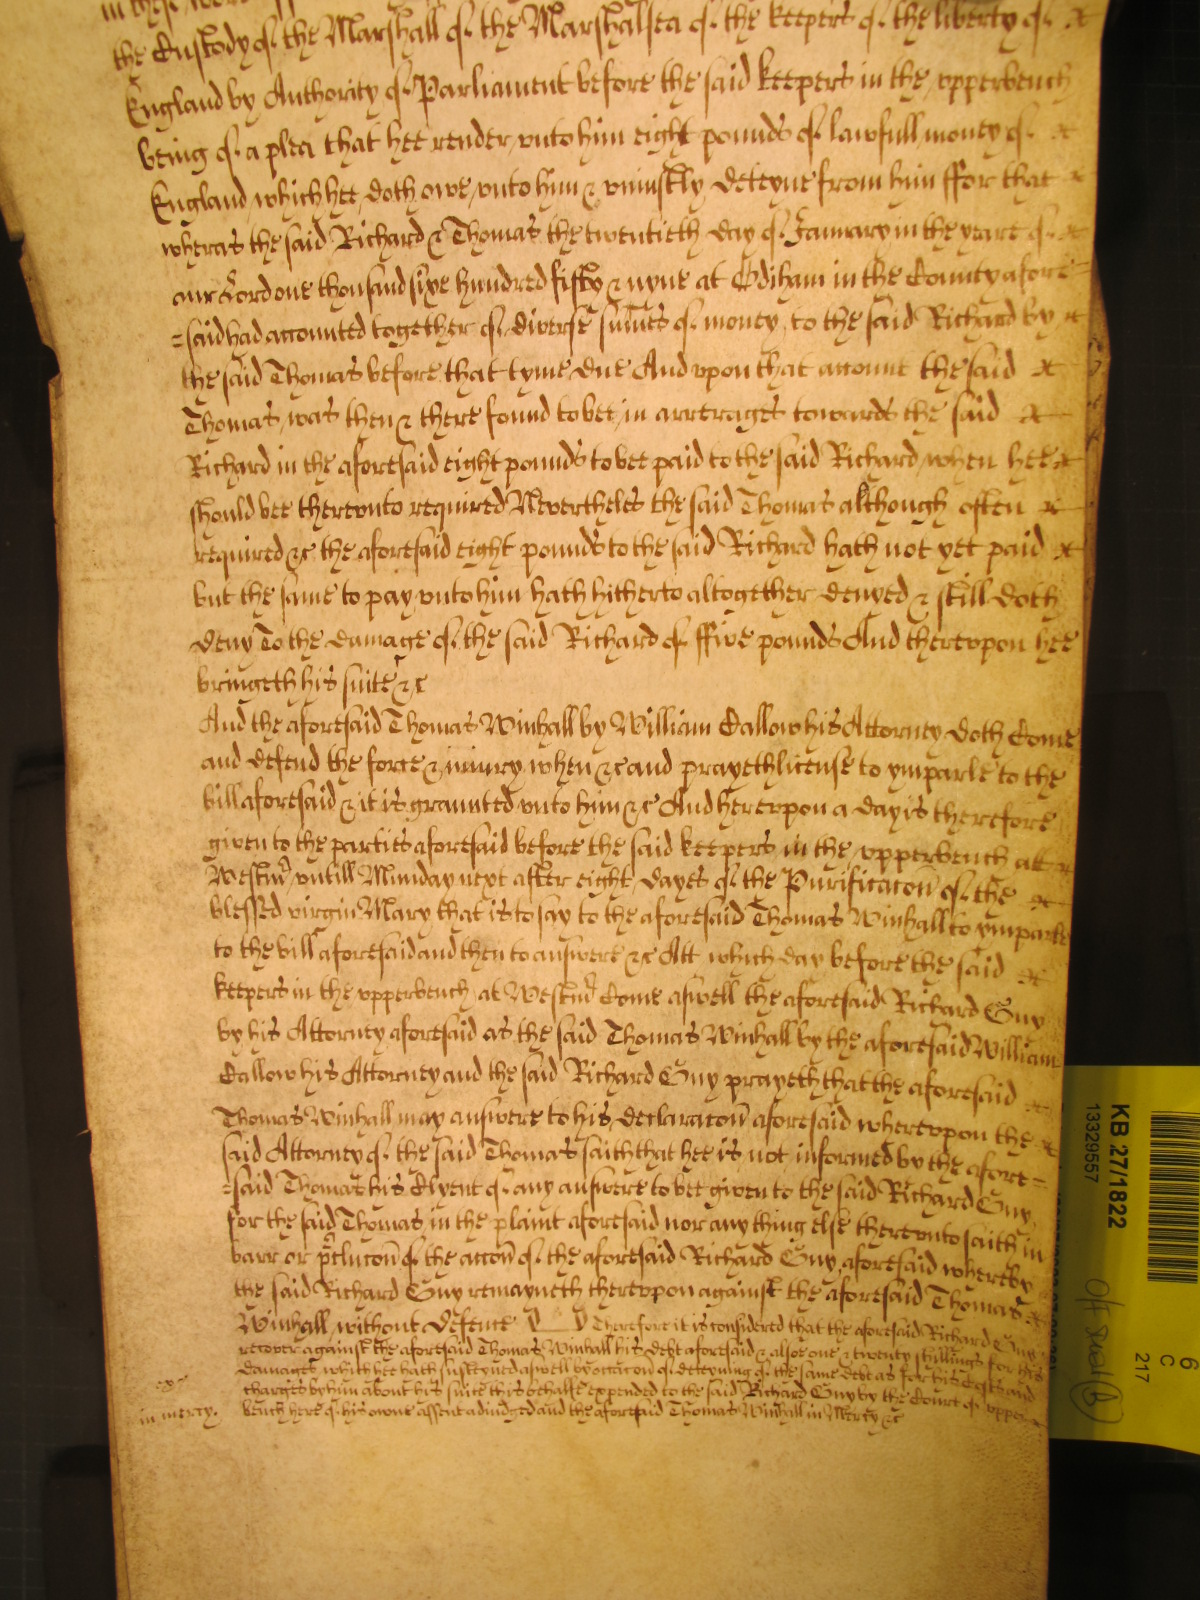 in these words
the Custody of the Marshall of the Marshalsea of the keepers of the liberty of
England by Authority of Parliament before the said keepers in the upperbench
being of a plea that hee render unto him eight pounds of lawfull money of
England which hee doth owe unto him & uniustly deteyne from him ffor that
wheras the said Richard & Thomas the twentieth day of January in the yeare of
our Lord one thousand sixe hundred fifty & nyne at Odiham in the County afore=
=said had accounted together of diverse summes of money to the said Richard by
the said Thomas before that tyme due And upon that account the said
Thomas was then & there found to bee in arrerages towards the said
Richard in the aforesaid eight pounds to bee paid to the said Richard when hee
should bee thereunto required Nevertheles the said Thomas although often
required &c the aforesaid eight pounds to the said Richard hath not yet paid
but the same to pay unto him hath hitherto altogether denyed & still doth
deny To the damage of the said Richard of ffive pounds And thereupon hee
bringeth his suite &c
And the aforesaid Thomas Winhall by William Callow his Attorney doth Come
and defend the force & iniury when &c and prayeth license to ymparle to the
bill aforesaid & it is graunted unto him &c And hereupon a day is therefore
given to the parties aforesaid before the said keepers in the upperbench at
Westmr untill Munday next after eight dayes of the Purificacon of the
blessed virgin Mary that is to say to the aforesaid Thomas Winhall to ymparle
to the bill aforesaid and then to answere &c Att which day before the said
keepers in the upperbench at Westmr Come aswell the aforesaid Richard Guy
by his Attorney aforesaid as the said Thomas Winhall by the aforesaid William
Callow his Attorney and the said Richard Guy prayeth that the aforesaid
Thomas Winhall may answere to his declaracon aforesaid whereupon the
said Attorney of the said Thomas saith that hee is not informed by the afore=
=said Thomas his Clyent of any answere to bee given to the said Richard Guy
for the said Thomas in the plaint aforesaid nor any thing else thereunto saith in
barr or preclucon of the accon of the aforesaid Richard Guy aforesaid whereby
the said Richard Guy remayneth thereupon against the aforesaid Thomas
Winhall without defence Therefore it is considered that the aforesaid Richard Guy
recover against the aforesaid Thomas Winhall his debt aforesaid & alsoe one & twenty shillings for his
damages which hee hath susteyned aswell by occacon of deteyning of the same debt as for his Costs and
charges by him about his suite in this behalfe expended to the said Richard Guy by the Court of upper
bench here of his owne assent adiudged and the aforesaid Thomas Winhall in Mercy &c
in mercy
KB 27/1822
13329557
6
C
217